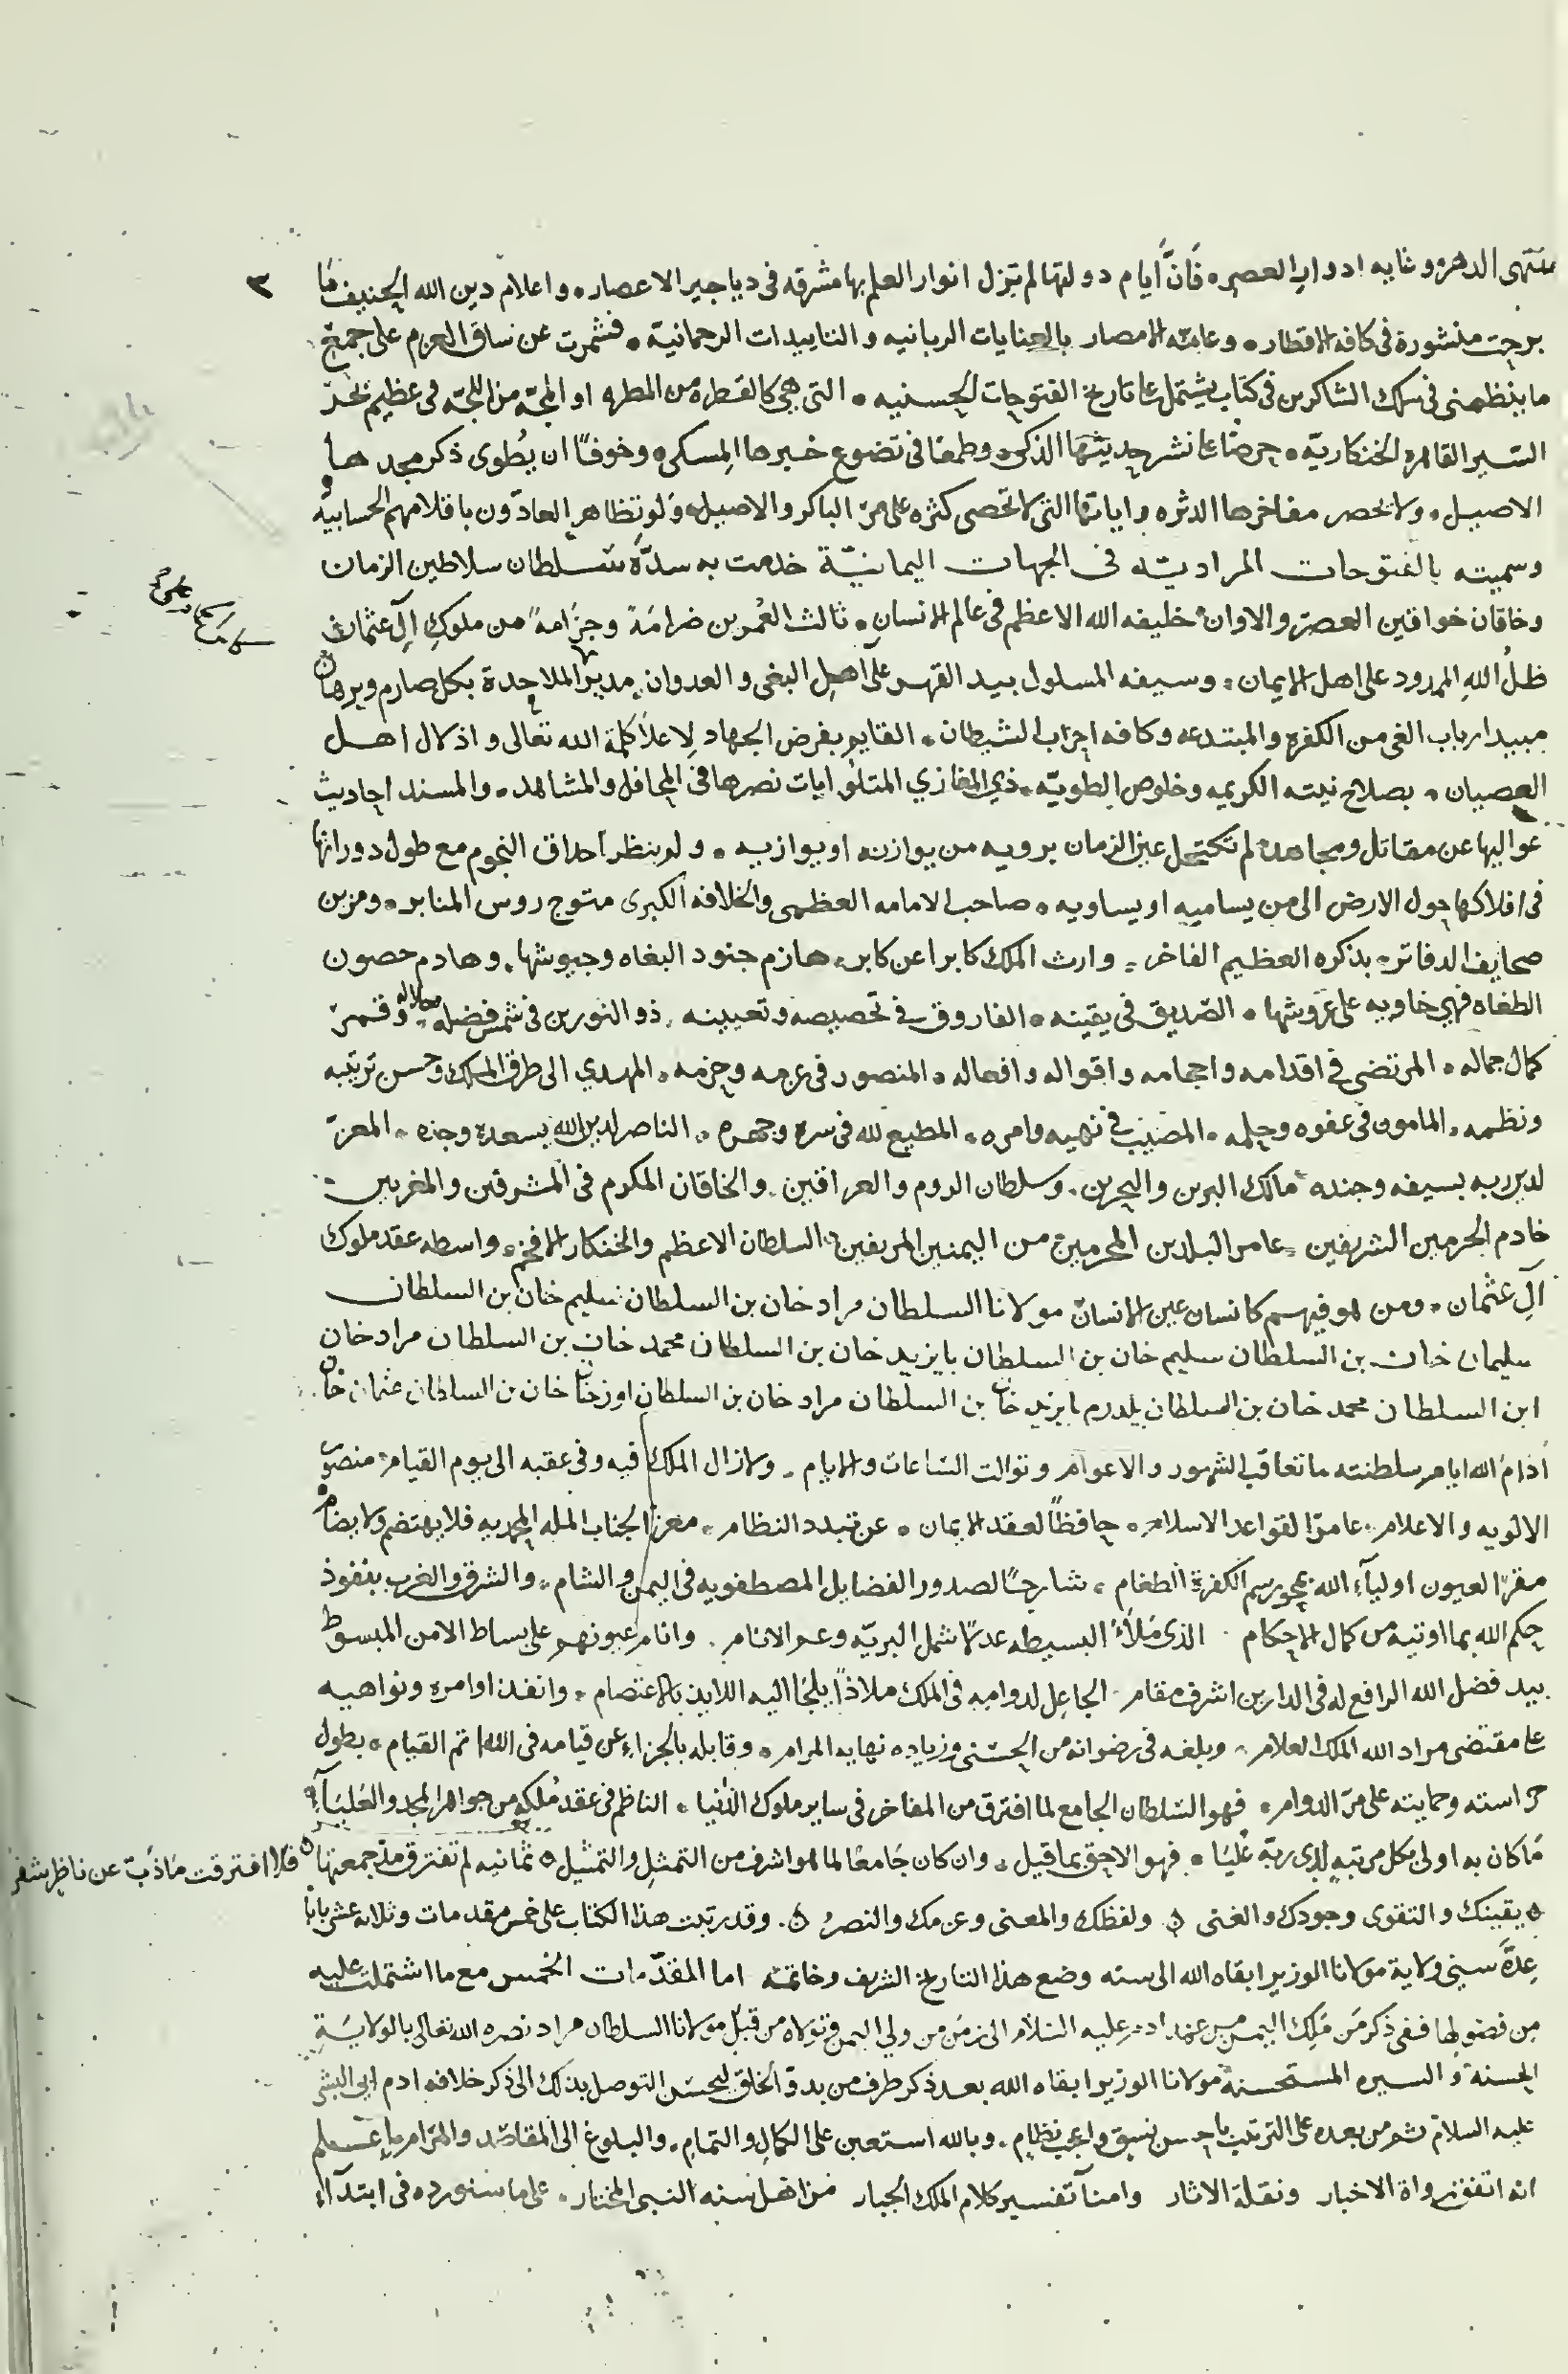 منتهى الدهر وغايه ادوار العصر فانّ ايام دولتها لم تزل انوار العلم بها مشرقه فى دياجير الاعصار واعلام دين الله الحنيف ما
٣
برحت منشورة فى كافه الاقطار وعامّه الامصار بالعنايات الربانيه والتاييدات الرحمانيّه فشمرت عن ساق العزم على جمع
ما ينظمنى فى سلك الشاكرين فى كتاب يشتمل على تاريخ الفتوحات الحسنيه التى هى كالقطره من المطره او المجّه من اللجّه فى عظيم
السير القاهره الخنكاريّه حرصًا على نشر حديثها الذكى وطمعًا فى تضوع خبرها المسكى وخوفًا ان يُطوى ذكر مجدها
الاصيل ولا يحصر مفاخرها الدثره واياتها التى لا تحصى كثره على مرّ الباكر والاصيل ولو تظاهر العادّون باقلامهم الحسابيه
وسميته بالفتوحات المراديّه فى الجهات اليمانيّة خدمت به سدّة سلطان سلاطين الزمان
وخاقان خواقين العصر والاوان خليفه الله الاعظم فى عالم الانسان ثالث العُمرين ضرامةً وحزامةً من ملوك آل عثمان
ظلُ الله الممدود على اهل الايمان وسيفه المسلول بيد القهر على اهل البغى والعدوان مدمر الملاحدة بكل صارم وبرهان
مبيد ارباب الغى من الكفره والمبتدعه وكافه احزاب الشيطان القايم بفرض الجهاد لاعلا كلمة الله تعالى واذلال اهل
العصيان بصلاح نيته الكريمه وخلوص الطويّه ذي المغازي المتلو ايات نصرها فى المحافل والمشاهد والمسند احاديث
عواليها عن مقاتل ومجاهد لم تكتحل عين الزمان برويه من يوازنه او يوازيه ولم ينظر احداق النجوم مع طول دورانها
فى افلاكها حول الارض الى من يساميه او يساويه صاحب الامامه العظمى والخلافه الكبرى متوج روس المنابر ومزين
صحايف الدفاتر بذكره العظيم الفاخر وارث الملك كابرا عن كابر هازم جنود البغاه وجيوشها وهادم حصون
الطغاه فهي خاويه على عروشها الصّديق فى يقينه الفاروق فى تحصيصه وتعيينه ذو النورين فى شمس فضله جلاله وقمر
كمال جماله المرتضى فى اقدامه واحجامه واقواله وافعاله المنصور فى عزمه وحزمه المهدي الى طرق الملك وحسن ترتيبه
ونظمه المامون فى عفوه وحلمه المصيب فى نهيه وامره المطيع لله فى سره وجهره الناصر لدين الله بسعده وجده المعزّ
لدين ربه بسيفه وجنده مالك البرين والبحرين وسلطان الروم والعراقين والخاقان المكرم فى المشرقين والمغربين
خادم الحرمين الشريفين عامر البلدين المحرمين من اليمنين السلطان الاعظم والخنكار الافخم واسطه عقد ملوك
آل عثمان ومن هو فيهم كانسان عين الانسان مولانا السلطان مراد خان بن السلطان سليم خان بن السلطان
سليمان خان بن السلطان سليم خان بن السلطان بايزيد خان بن السلطان محمد خان بن السلطان مراد خان
ابن السلطان محمد خان بن السلطان يلدرم بايزيد خان بن السلطان مراد خان بن السلطان اورخان خان بن السلطان عثمان خان
ادام الله ايام سلطنته ما تعاقب الشهور والاعوام وتوالت الساعات والايام ولا زال الملك فيه وفى عقبه الى يوم القيام منصور
الالويه والاعلام عامرًا لقواعد الاسلام حافظًا لعقد الايمان عن تبدد النظام معزّا لجناب المله المحمديه فلا يهتضم ولا يضام
مقرّا لعيون اولياء الله بمحو رسم الكفره الطغام شارحًا لصدور الفضايل المصطفويه فى اليمن والشام والشرق والغرب بنفوذ
حكم الله بما اوتيه من كمال الاحكام الذى ملأ البسيطه عدلًا شمل البريّه وعم الانام وانام عيونهم على بساط الامن المبسوط
بيد فضل الله الرافع له فى الدارين اشرف مقام الجاعل لدوامه فى الملك ملاذًا يلجا اليه اللايذ بالاعتصام وانفذ اوامره ونواهيه
على مقتضى مراد الله الملك العلام وبلغه فى رضوانه من الحسنى وزياده نهايه المرام وقابله بالجزاء عن قيامه فى الله اتم القيام بطول
حراسته وحمايته على مرّ الدوام فهو السلطان الجامع لما افترق من المفاخر فى ساير ملوك الدنيا الناظم فى عقد مُلكه من جواهر المجد والعليا
ما كان به اولى بكل مرتبه لدى ربّه عُليا فهو الاحق بما قيل وان كان جامعًا لما هو اشرف من التمثل والتمثيل ثمانيه لم تفترق مذ جمعتها فلا افترقت ما ذبّ عن ناظر شفر
يقينك والتقوى وجودك والغنى ولفظك والمعنى وعزمك والنصر وقد رتبت هذا الكتاب على خمس مقدمات وثلاثه عشر بابا
عدّة سنين ولاية مولانا الوزير ابقاه الله الى سنه وضع هذا التاريخ الشريف وخاتمة اما المقدّمات الخمس مع ما اشتملت عليه
من فصولها ففى ذكر من ملك اليمن من عهد ادم عليه السلام الى زمن من ولي اليمن وتولاه من قبل مولانا السلطان مراد نصره الله تعالى بالولاية
الحسنة والسيره المستحسنة مولانا الوزير ابقاه الله بعد ذكر طرف من بدو الخلق ليحسن التوصل بذلك الى ذكر خلافه ادم ابى البشر
عليه السلام ثم من بعده على الترتيب باحسن نسق واعجب نظام وبالله استعين على الكمال والتمام والبلوغ الى المقاصد والمرام اعلم
انه اتفق رواة الاخبار ونقلة الاثار وامنآ تفسير كلام الملك الجبار من اهل سنه النبى المختار على ما سنورده فى ابتدآء